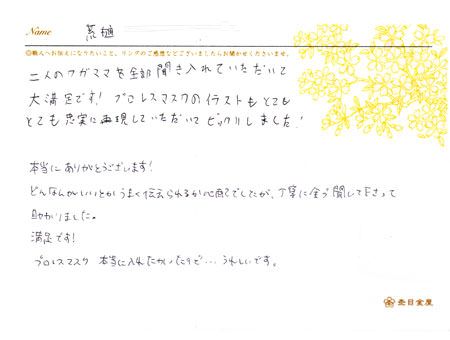 Name 荒樋
◎職人へお伝えになりたいこと、リングのご感想などございましたらお聞かせくださいませ。
二人のワガママを全部聞き入れていただいて
大満足です! プロレスマスクのイラストもとても
とても忠実に再現していただいてビックリしました!
本当にありがとうございます!
どんなんがいいとかうまく伝えられるか心配でしたが、丁寧に全部聞いて下さって
助かりました。
満足です!
プロレスマスク 本当に入れたかったので…うれしいです。
杢目金屋